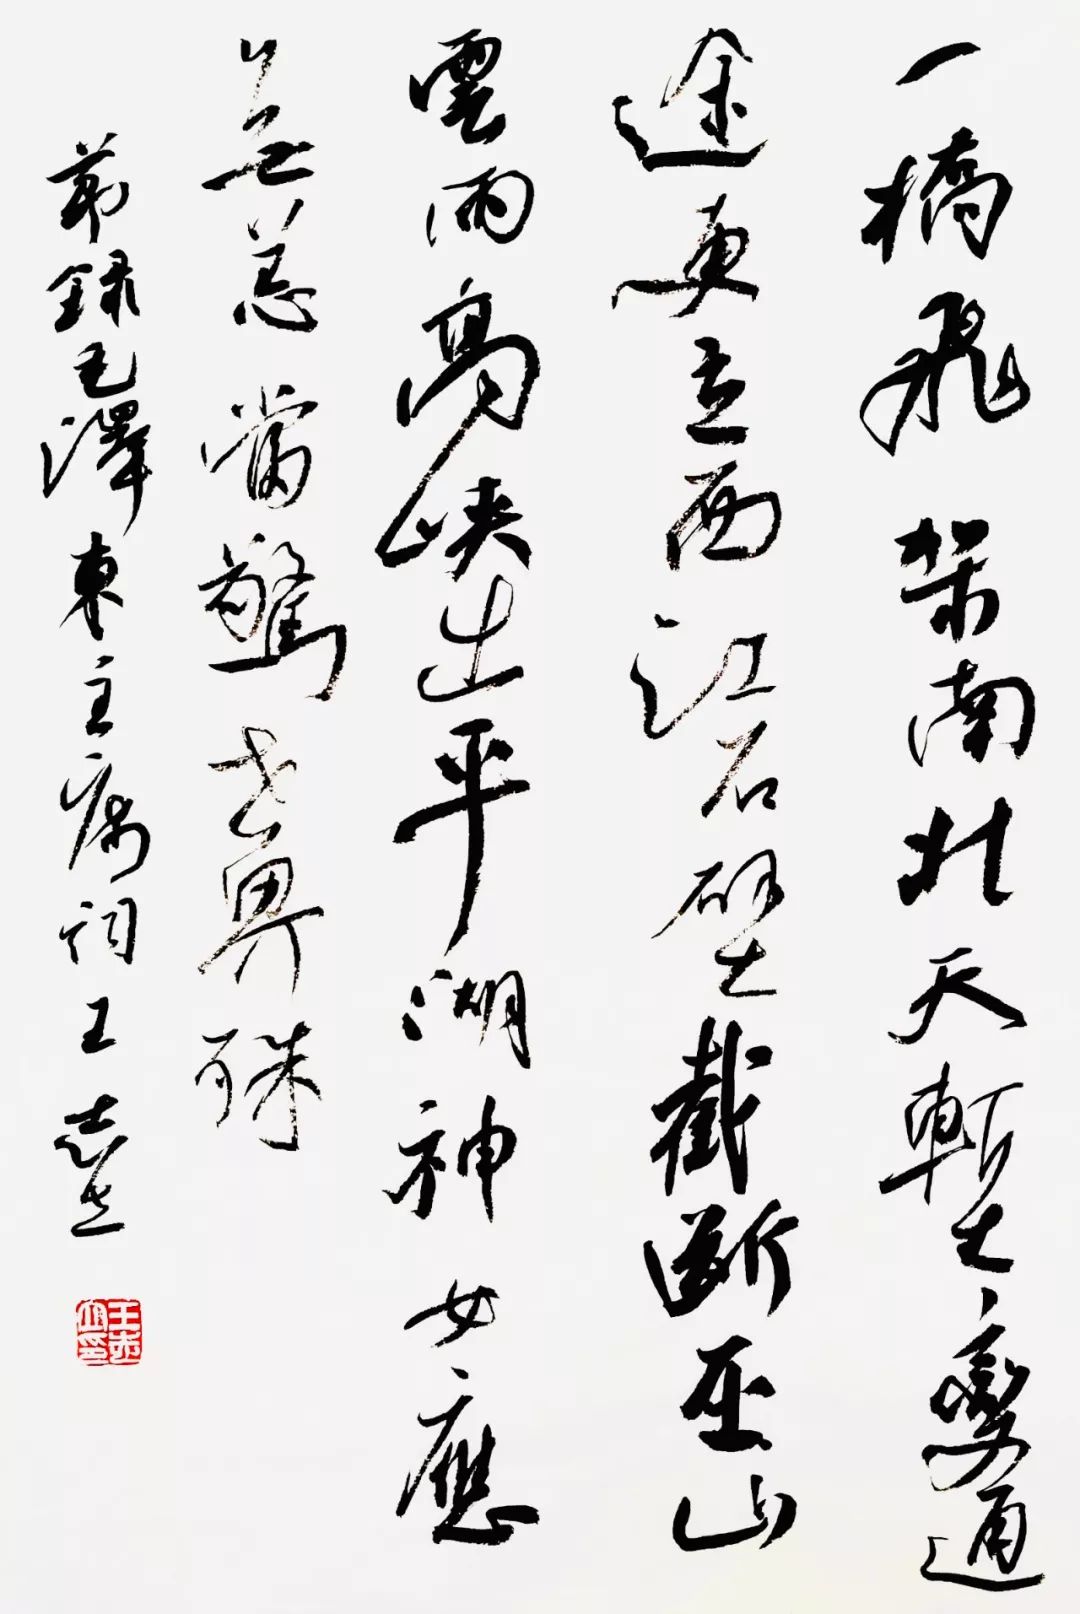 一橋飛架南北天塹變通
途更立西江石壁截斷巫山
雲雨高峽出平湖神女應
無恙當驚世界殊
節録毛澤東主席詞王志立